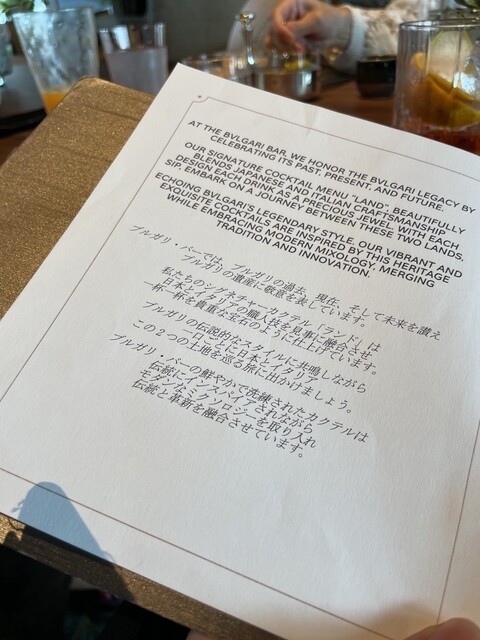 AT THE BVLGARI BAR, WE HONOR THE BVLGARI LEGACY BY
CELEBRATING ITS PAST, PRESENT, AND FUTURE.
OUR SIGNATURE COCKTAIL MENU "LAND", BEAUTIFULLY
BLENDS JAPANESE AND ITALIAN CRAFTSMANSHIP
DESIGN EACH DRINK AS A PRECIOUS JEWEL. WITH EACH
SIP, EMBARK ON A JOURNEY BETWEEN THESE TWO LANDS.
ECHOING BVLGARI'S LEGENDARY STYLE, OUR VIBRANT AND
EXQUISITE COCKTAILS ARE INSPIRED BY THIS HERITAGE
WHILE EMBRACING MODERN MIXOLOGY, MERGING
TRADITION AND INNOVATION.
ブルガリ・バーでは、ブルガリの過去、現在、そして未来を讃え
ブルガリの遺産に敬意を表しています。
私たちのシグネチャーカクテル「ランド」は
日本とイタリアの職人技を見事に融合させ
一杯一杯を貴重な宝石のように仕上げています。
ブルガリの伝説的なスタイルに共鳴しながら
一口ごとに日本とイタリア
この２つの土地を巡る旅に出かけましょう。
ブルガリ・バーの鮮やかで洗練されたカクテルは
伝統にインスパイアされながら
モダンなミクソロジーを取り入れ
伝統と革新を融合させています。